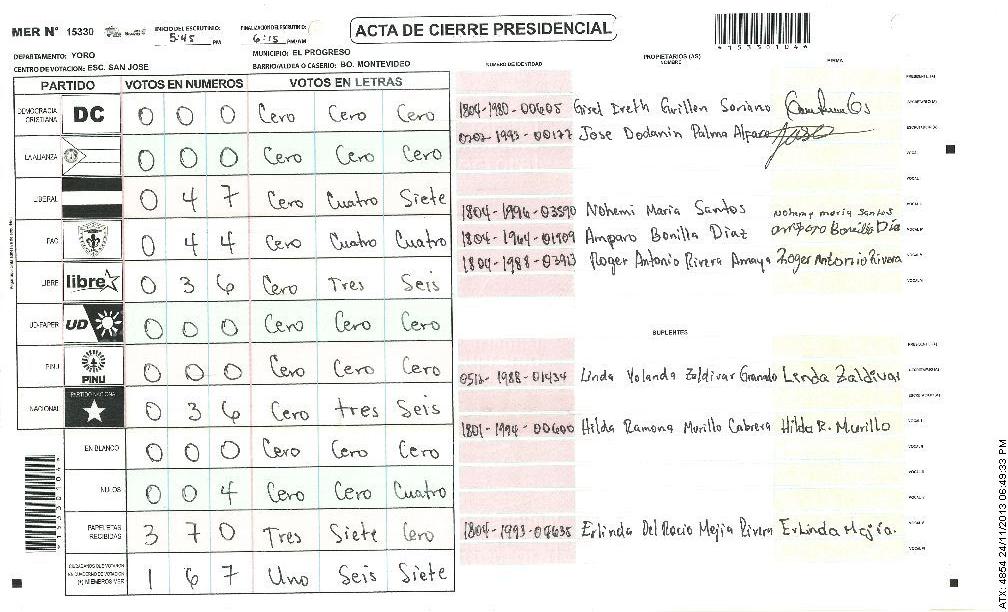 MER Nº 15330
INICIO DEL ESCRUTINIO: 5:45 PM
FINALIZACION DEL ESCRUTINIO: 6:15 PM/AM
ACTA DE CIERRE PRESIDENCIAL
DEPARTAMENTO: YORO
MUNICIPIO: EL PROGRESO
CENTRO DE VOTACION: ESC. SAN JOSE
BARRIO/ALDEA O CASERIO: BO. MONTEVIDEO
NUMERO DE IDENTIDAD
PROPIETARIOS (AS)
NOMBRE
FIRMA
PARTIDO VOTOS EN NUMEROS VOTOS EN LETRAS
DEMOCRACIA CRISTIANA DC 0 0 0 Cero Cero Cero
LA ALIANZA 0 0 0 Cero Cero Cero
LIBERAL 0 4 7 Cero Cuatro Siete
PAC 0 4 4 Cero Cuatro Cuatro
LIBRE libre 0 3 6 Cero Tres Seis
UD-FAPER UD 0 0 0 Cero Cero Cero
PINU PINU 0 0 0 Cero Cero Cero
NACIONAL PARTIDO NACIONAL 0 3 6 Cero tres Seis
EN BLANCO 0 0 0 Cero Cero Cero
NULOS 0 0 4 Cero Cero Cuatro
PAPELETAS RECIBIDAS 3 7 0 Tres Siete Cero
CIUDADANOS QUE VOTARON EN CUADERNO DE VOTACION (+) MIEMBROS MER 1 6 7 Uno Seis Siete
1804-1980-00605 Gisel Ireth Guillen Soriano
0202-1993-00177 Jose Dodanin Palma Alfaro
1804-1996-03590 Nohemi Maria Santos Nohemy maria santos
1804-1964-01909 Amparo Bonilla Diaz Amparo Bonilla Día
1804-1988-03913 Roger Antonio Rivera Amaya Roger Antonio Rivera
SUPLENTES
0512-1988-01434 Linda Yolanda Zaldivar Granado Linda Zaldivar
1801-1994-00600 Hilda Ramona Murillo Cabrera Hilda R. Murillo
1804-1993-04635 Erlinda Del Rocio Mejia Rivera Erlinda Mejía.
ATX: 4854 24/11/2013 06:49:33 PM